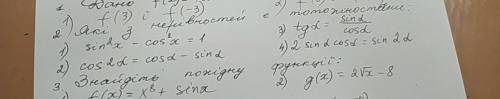 Дано f(
1) f(3) і f(-3)
2) Які з нерівностей є тотожностями:
1) sin²x - cos²x = 1
3) tgα = sinα/cosα
2) cos2α = cosα - sinα
4) 2 sinα cosα = sin 2α
3. Знайдіть похідну функції:
1) f(x) = x⁸ + sinx
2) g(x) = 2√x - 8